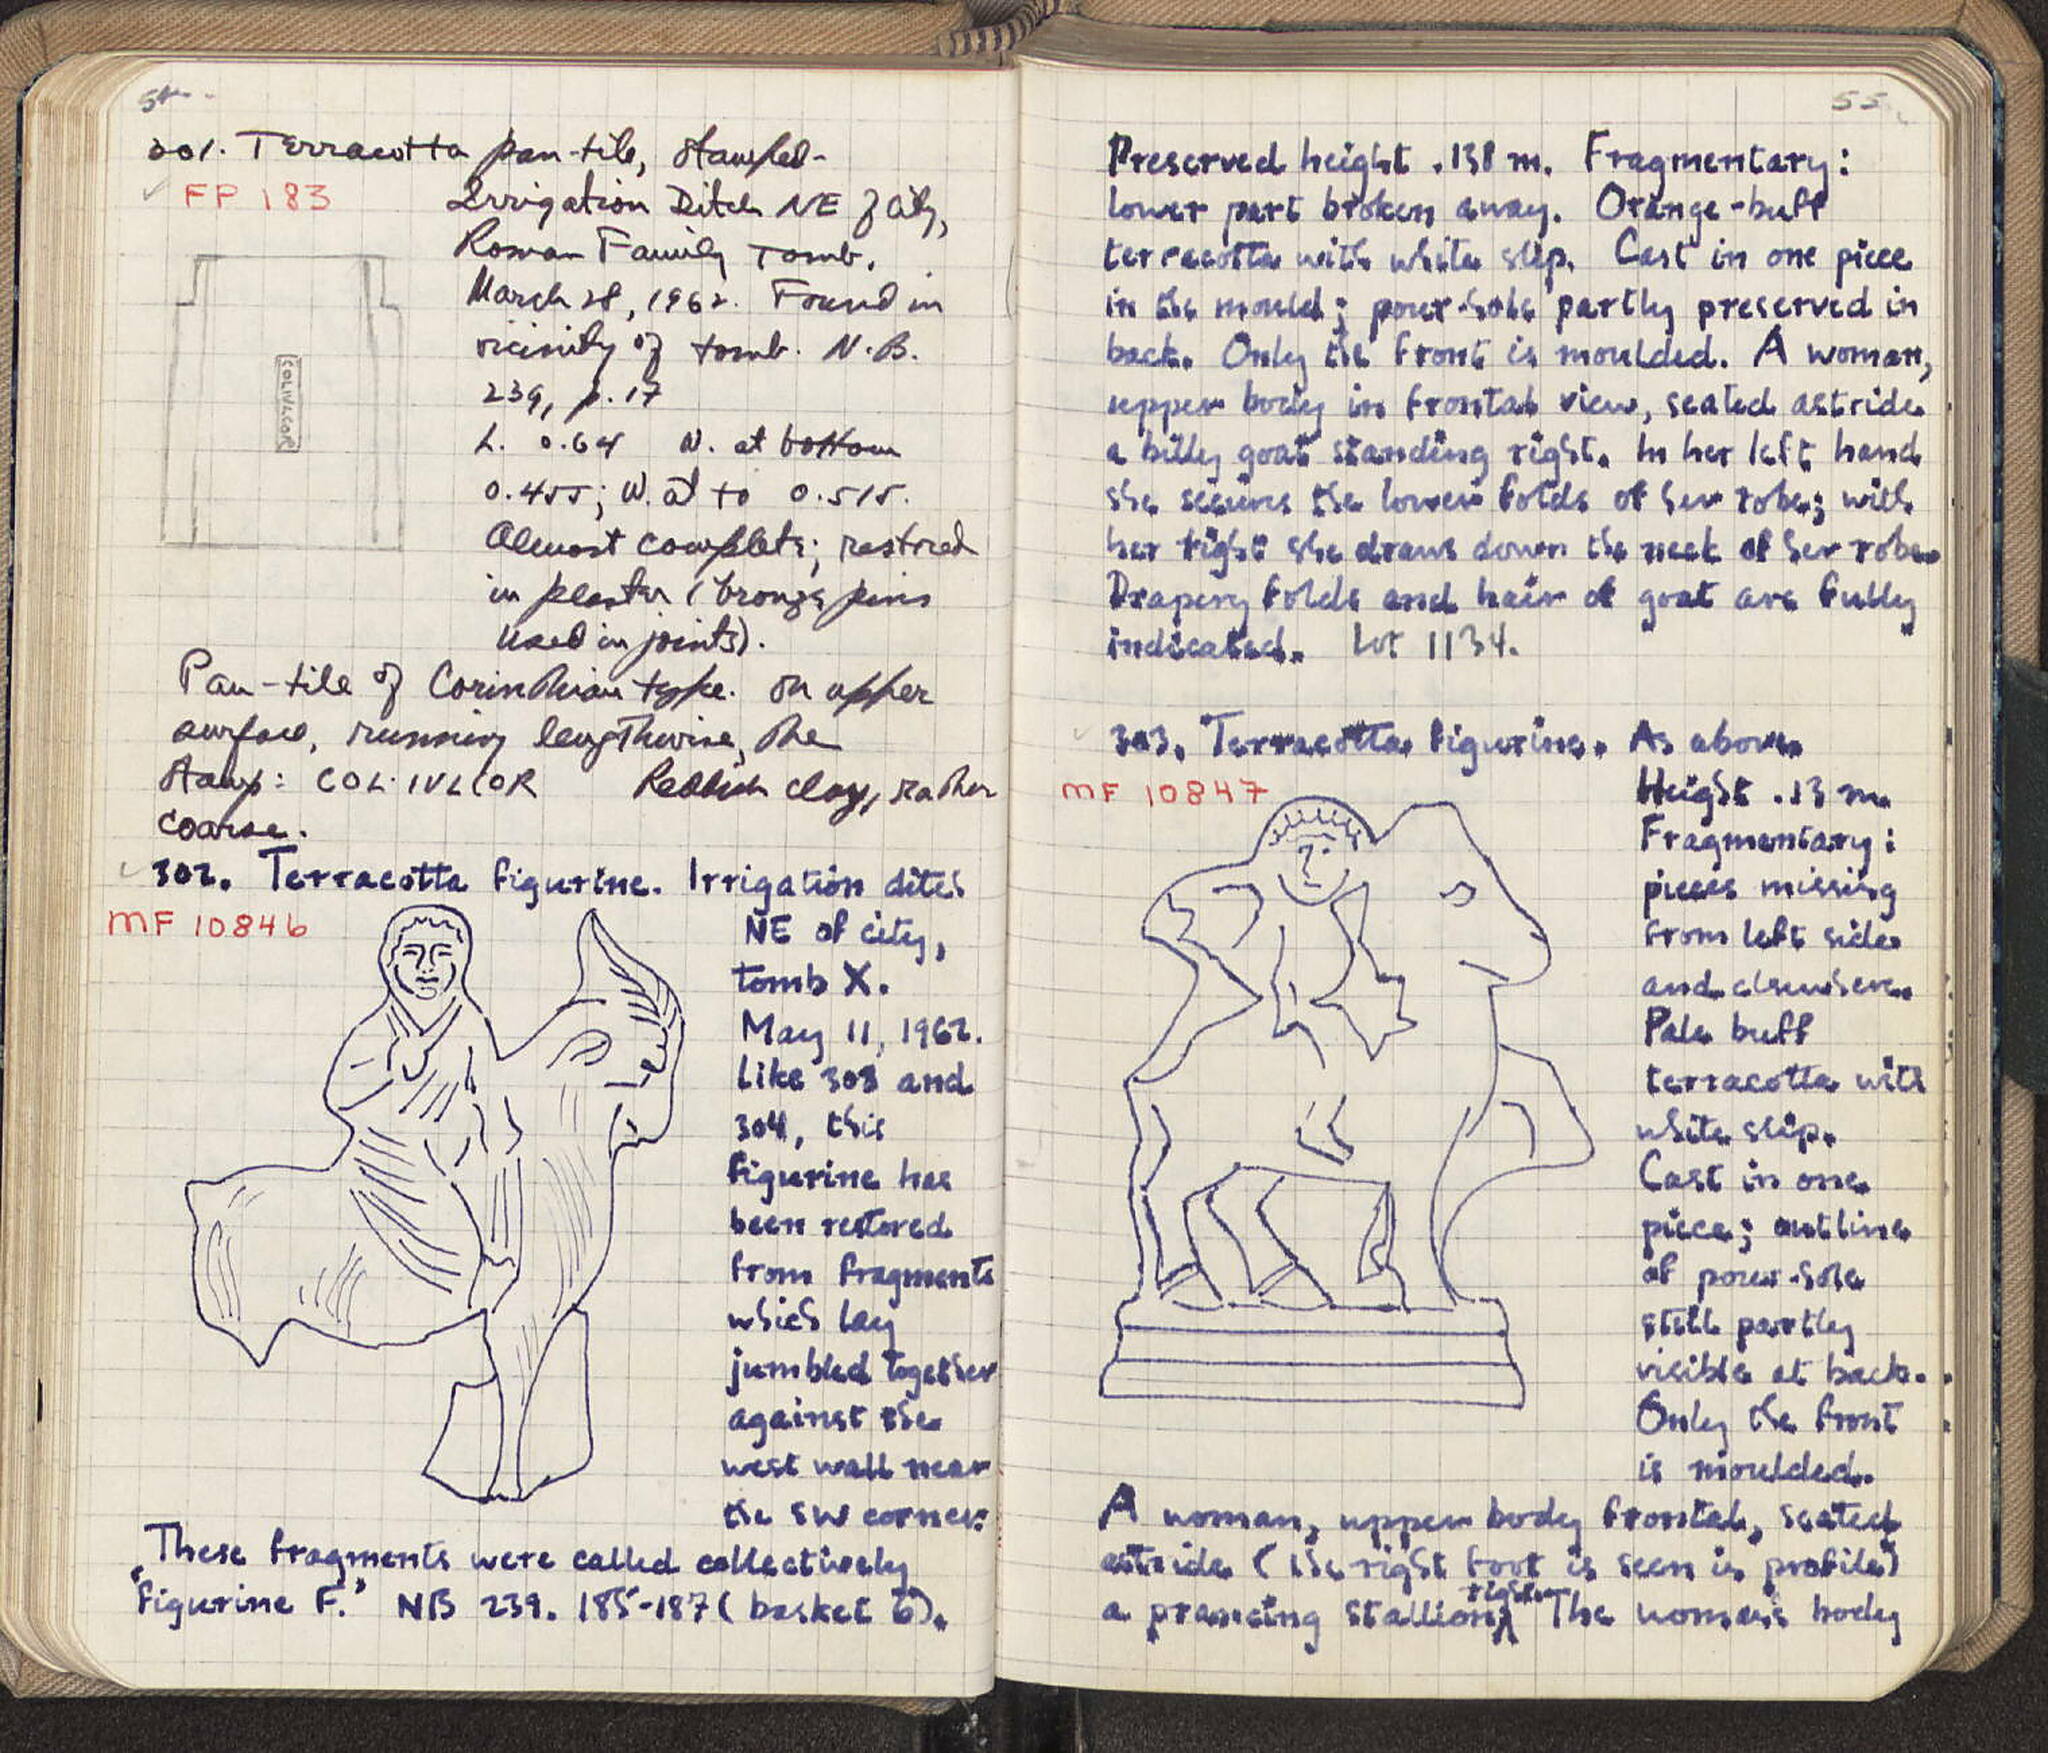 54
301. Terracotta pan-tile, stamped-
FP 183
Irrigation Ditch NE of city,
Roman Family Tomb.
March 28, 1962. Found in
vicinity of tomb. N.B.
239, p. 17
L. 0.64 W. at bottom
0.455; W. at to 0.515.
Almost complete; restored
in plaster (bronze pins
used in joints).
COLIVLCOR
Pan-tile of Corinthian type. On upper
surface, running lengthwise, the
stamp: COL·IVLCOR Reddish clay, rather
coarse.
302. Terracotta figurine. Irrigation ditch
MF 10846
NE of city,
tomb X.
May 11, 1962.
Like 303 and
304, this
figurine has
been restored
from fragments
which lay
jumbled together
against the
west wall near
the SW corner.
These fragments were called collectively
"figurine F." NB 239. 185-187 (basket 6).
55
Preserved height .138 m. Fragmentary:
lower part broken away. Orange-buff
terracotta with white slip. Cast in one piece
in the mould; pour-hole partly preserved in
back. Only the front is moulded. A woman,
upper body in frontal view, seated astride
a billy goat standing right. In her left hand
she secures the lower folds of her robe; with
her right she draws down the neck of her robe.
Drapery folds and hair of goat are fully
indicated. Lot 1134.
303. Terracotta figurine. As above.
MF 10847
Height .13 m.
Fragmentary:
pieces missing
from left side
and elsewhere.
Pale buff
terracotta with
white slip.
Cast in one
piece; outline
of pour-hole
still partly
visible at back.
Only the front
is moulded.
A woman, upper body frontal, seated
astride (the right foot is seen in profile)
a prancing stallion, right. The woman's body